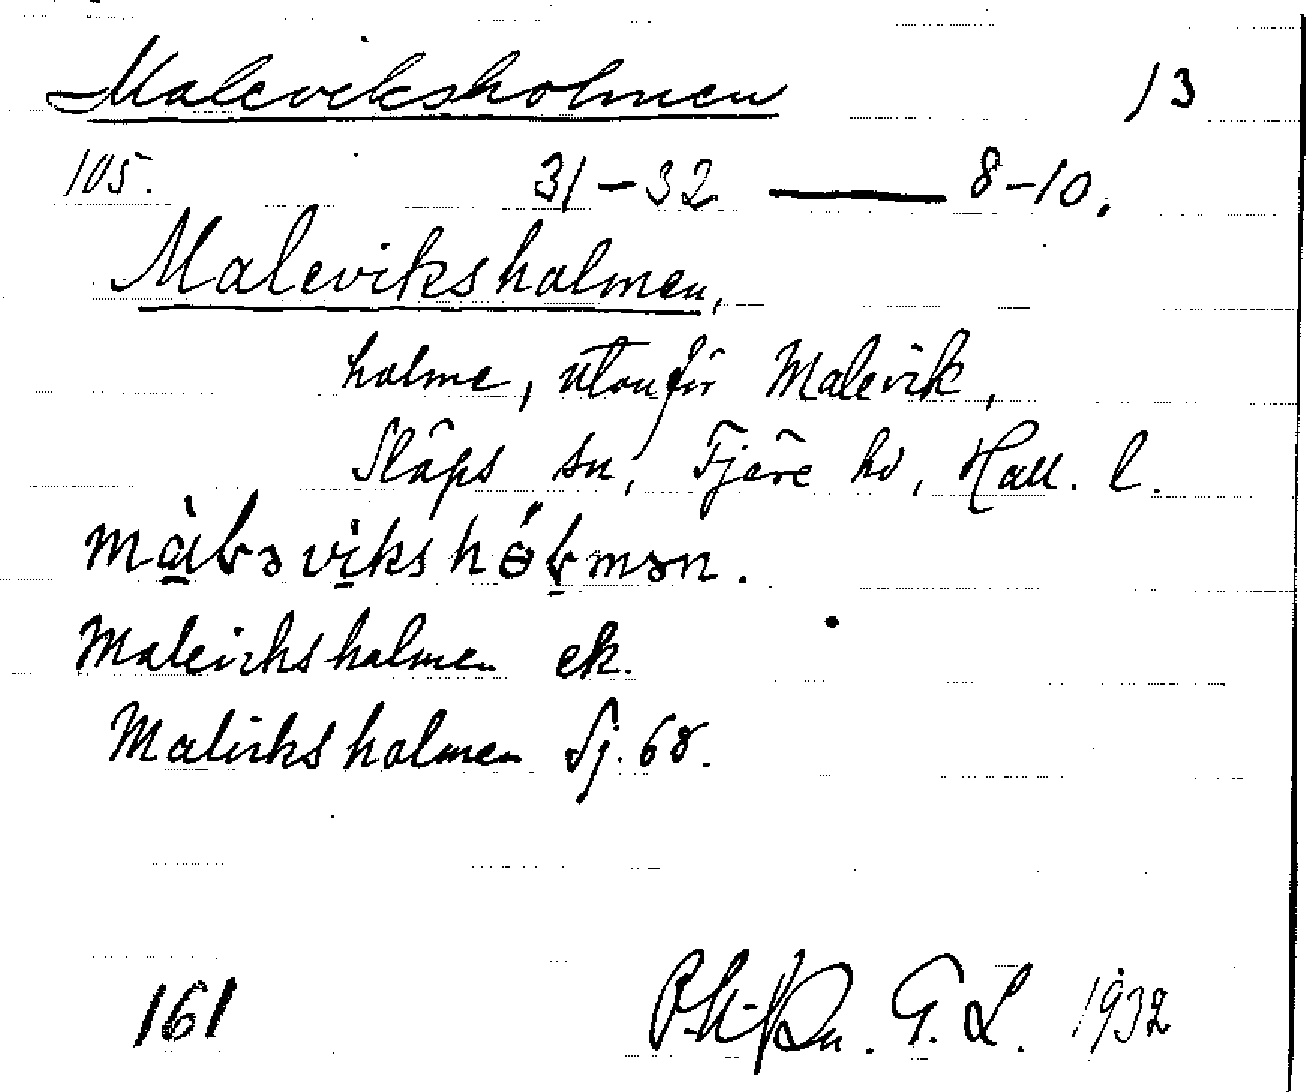 Maleviksholmen 13
105. 31-32 — 8-10.
Maleviksholmen,
holme, utanför Malevik,
Släps sn, Fjäre hd, Hall. l.
Maleviksholmen ek.
Maleviksholmen Sj. 68.
161 G. L. 1932